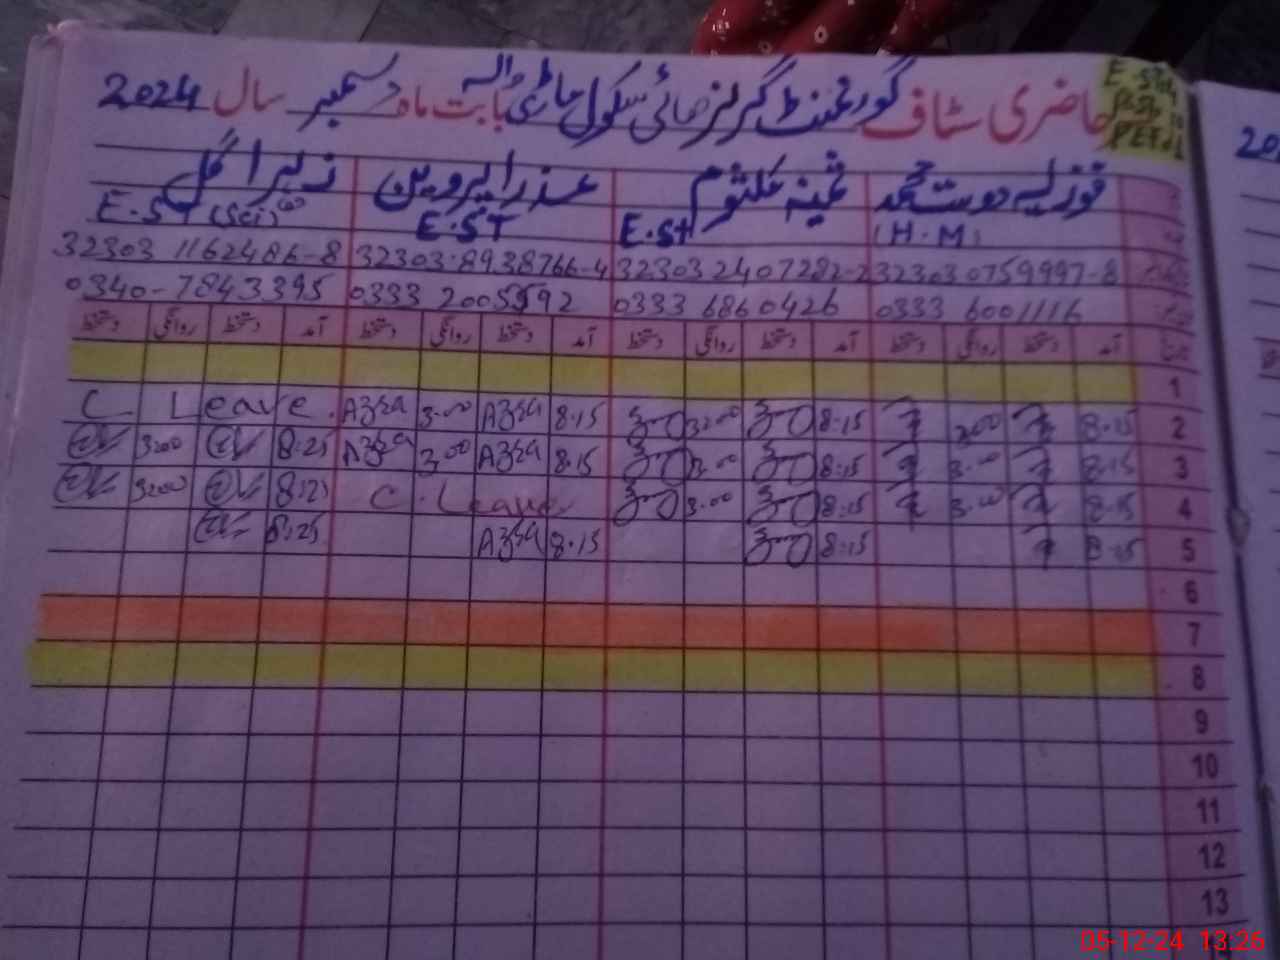 حاضری سٹاف گورنمنٹ گرلز ہائی سکول ماڑی والہ بابت ماہ دسمبر سال 2024
E.ST
فوزیہ دوست محمد ثمینہ کلثوم عذرا پروین زہرا گل
(H.M) E.ST E.ST E.ST (Sci)
323030759997-8 32303 2407282-2 32303-8938766-4 32303 1162486-8
0333 6001116 0333 6860426 0333 2005592 0340-7843395
آمد دستخط روانگی دستخط آمد دستخط روانگی دستخط آمد دستخط روانگی دستخط آمد دستخط روانگی دستخط
1
2 8.15 3.00 8:15 3:00 8.15 Azra 3.00 Azra C Leave
3 8.15 3.00 8:15 3.00 8.15 Azra 3.00 Azra 8:25 3:00
4 8.15 3.00 8:15 3.00 C. Leave 8:25 3:00
5 8.15 8:15 8.15 Azra 8:25
6
7
8
9
10
11
12
13
05-12-24 13:26